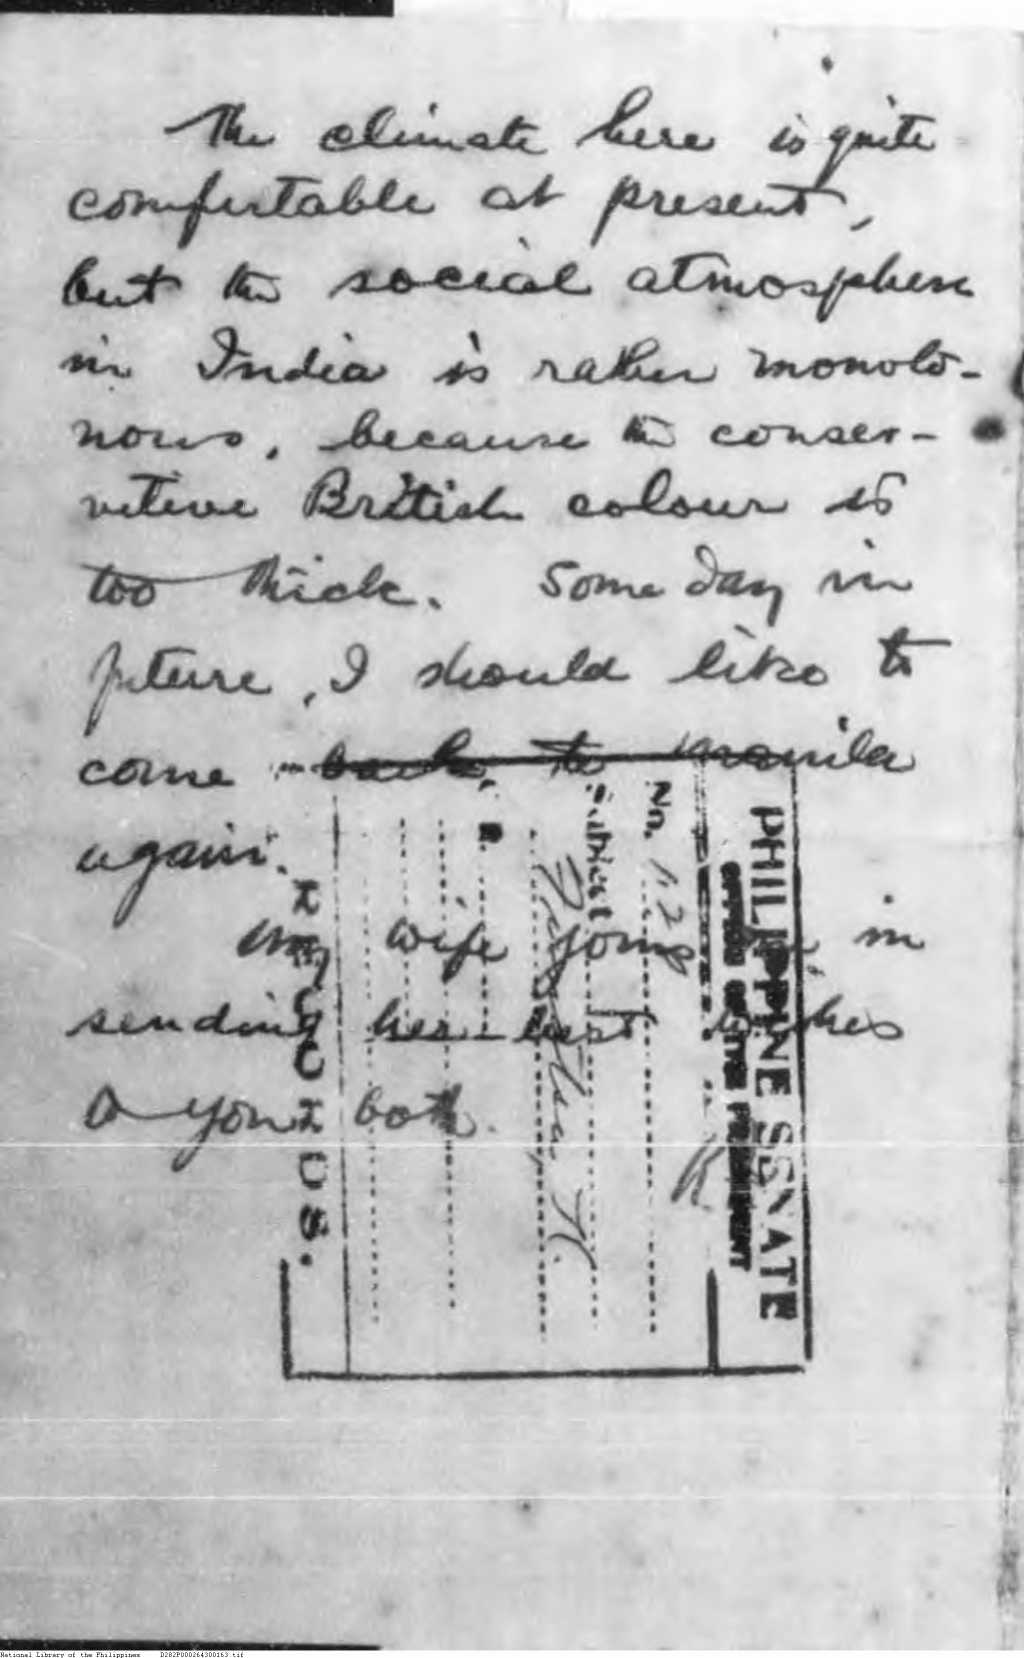 The climate here is quite
comfortable at present,
but the social atmosphere
in India is rather monoto-
nous, because the conser-
vative British colour is
too thick. Some day in
future, I should like to
come back to Manila
again.
My wife joins me in
sending her best wishes
to you both.
PHILIPPINE SENATE
OFFICE OF THE PRESIDENT
No. 12
Subject
RECORDS.
National Library of the Philippines D282P000264300163.tif